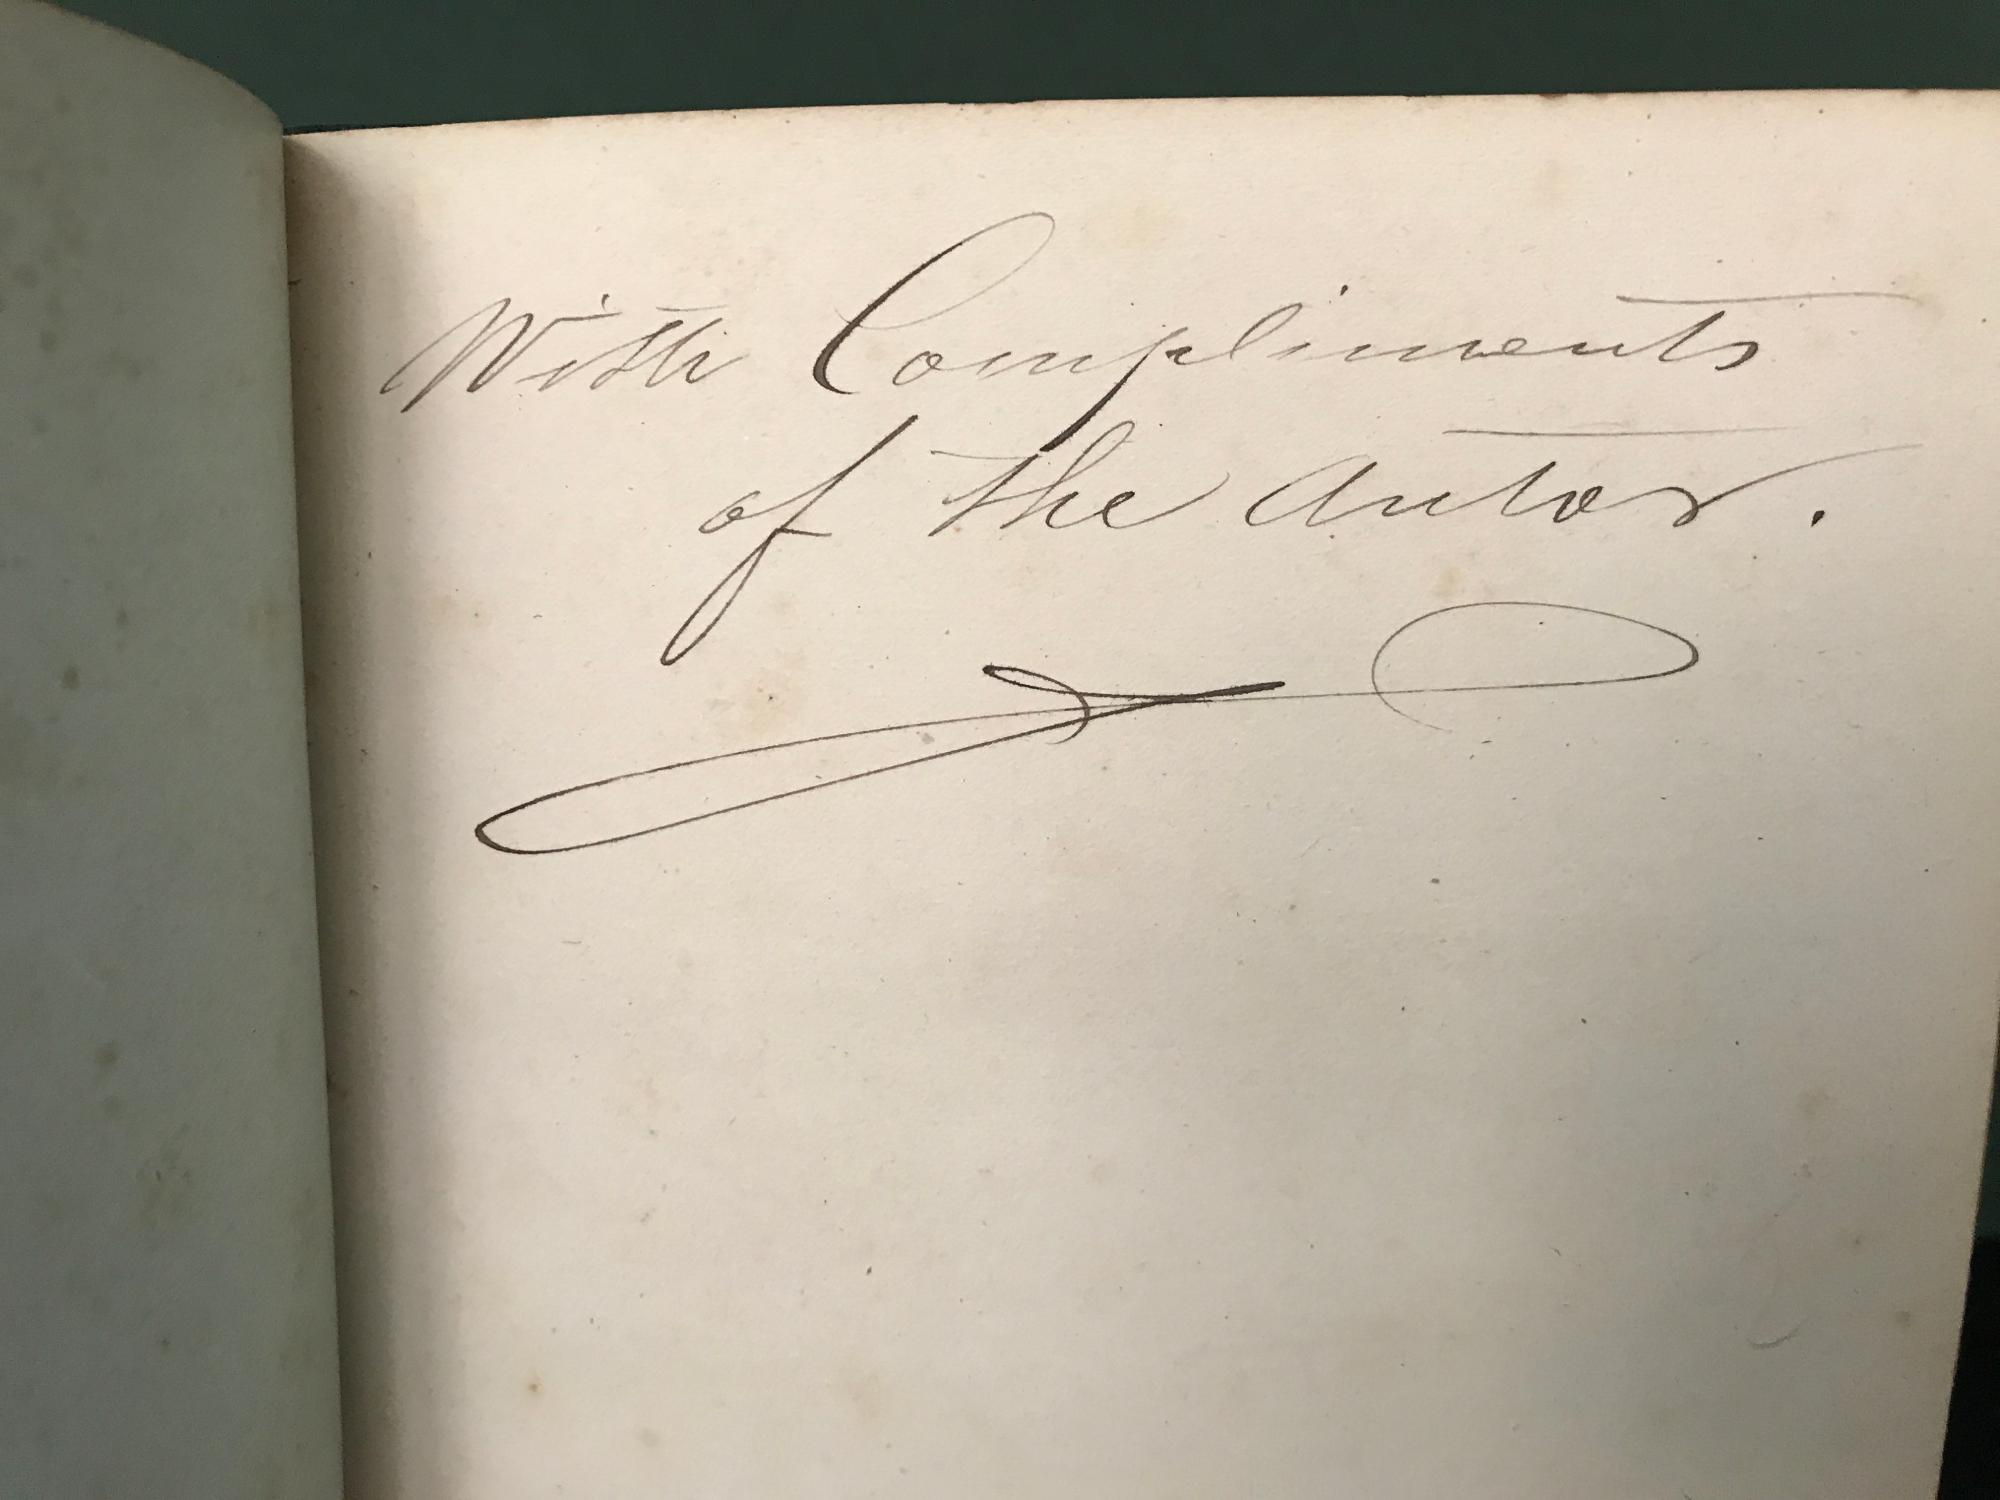 With Compliments
of the Autor.